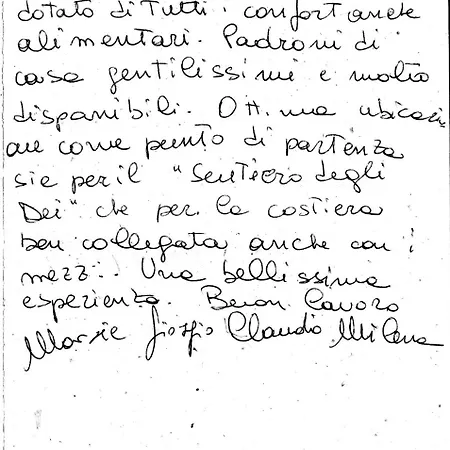 dotato di Tutti i confort anche
alimentari. Padroni di
casa gentilissimi e molto
disponibili. Ottima ubicazio
ne come punto di partenza
sie per il "Sentiero degli
Dei" che per la costiera
ben collegata anche con i
mezzi. Una bellissima
esperienza. Buon Lavoro
Giorgio Claudio Milena